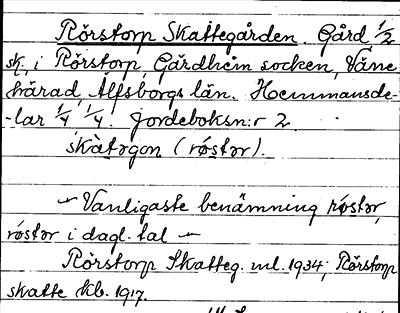 Rörstorp Skattegården. Gård 1/2
sk. i Rörstorp Gärdhem socken, Väne
härad, Älfsborgs län. Hemmansde-
-lar 1/4 1/4. Jordeboksn:r 2.
skàtəgọn (rǿstər).
~ Vanligaste benämning rǿstər,
rǿstər i dagl. tal ~
Rörstorp Skatteg. ml. 1934; Rörstorp
skatte kb. 1917.